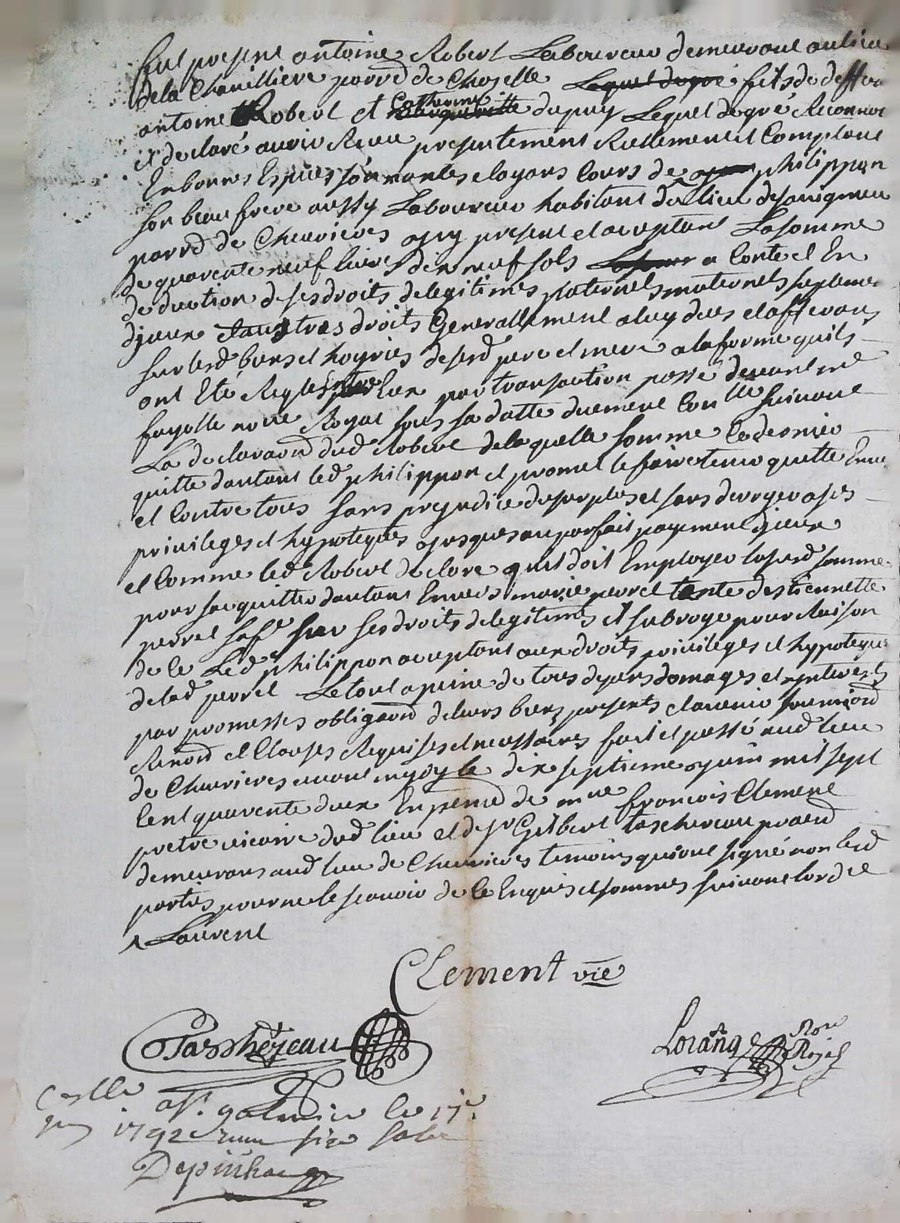 fut present antoine Robert Laboureur demeurant au lieu
de la Chavilliere parrd de Choselle Lequel de gré fils de deffun
antoine Robert et Catherine Margueritte dupuy Lequel de gré Reconnoi
et declaré avoir Receu presentement Reellement et Comptant
En bonnes Espices sonnantes et ayans Cours de philippon
son beau frere aussy Laboureur habitant du lieu de
parrd de Chevrieres a present et aceptant La somme
de quarente neuf livres dix neuf sols a Conte et En
deduction de ses droits de legitimes paternels maternels
d'yceux et autres droits Generallement a luy dues et affe
sur lesd biens et hoyries de sesd pere et mere a la forme quils
ont Eté Reglés entre Eux par transaction passé devant me
fayolle nore Royal sous sa datte duement suivant
La declaraon dud Robert de laquelle somme Ce dernier
quitte dautant led philippon et promet le faire tenir quitte Enve
et Contre tous sans prejudice du surplus et sans deroger a ses
privileges et hypoteques jusques au parfait payement d'yceux
et Comme led Robert declare quil doit Employer lasusd somme
pour sacquitter dautant Envers marie perrel tente destiennette
perrel sa fe sur ses droits de legitimes il subroge pour Raison
de ce Led philippon aceptant aux droits privileges et hypoteques
de lad perrel Le tout a peine de tous depens domages et interets
par promesses obligaons de leurs biens presents et avenir soumions
Renons et Clauses Requises et necessaires fait et passé aud lieu
de Chevrieres avant mydy le dix septieme juin mil sept
Cent quarente deux En presence de mre francois Clement
pretre vicaire dud lieu et de sr Gilbert taschereau
demeurans aud lieu de Chevrieres temoins qui ont signé non lesd
parties pour ne le scavoir de Ce Enquis et sommes suivant lord ce
Laurent
Clement vire
Parchejeau
Lorang Nore
Royal
le 17e
1742
Depiuhac